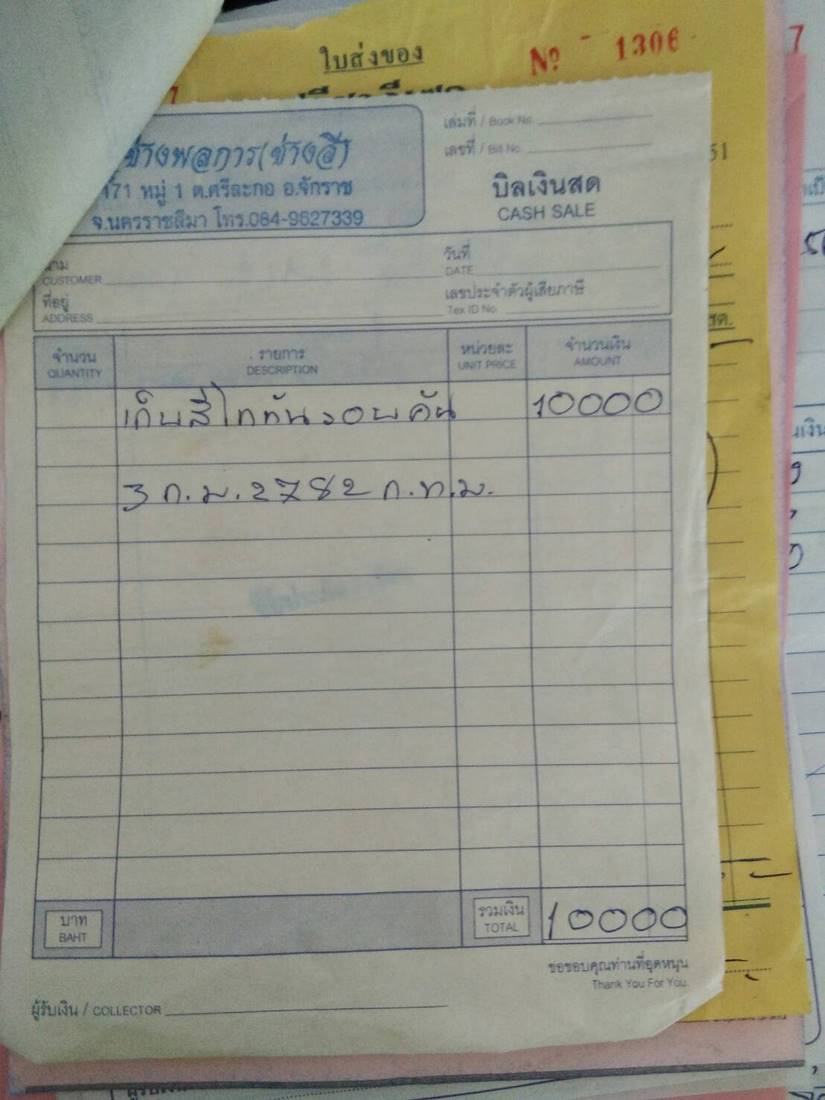 ใบส่งของ
№ 1306
7
7
51
ช่างพลการ(ช่างอี)
171 หมู่ 1 ต.ศรีละกอ อ.จักราช
จ.นครราชสีมา โทร.084-9627339
เล่มที่ / Book No.
เลขที่ / Bill No.
บิลเงินสด
CASH SALE
นาม
CUSTOMER
วันที่
DATE
ที่อยู่
ADDRESS
เลขประจำตัวผู้เสียภาษี
Tex ID No.
จำนวน รายการ หน่วยละ จำนวนเงิน
QUANTITY DESCRIPTION UNIT PRICE AMOUNT
เก็บสีไททันรอบคัน 10000
3 ก.ม.2782 ก.ท.ม.
บาท
BAHT
รวมเงิน
TOTAL
10000
ขอขอบคุณท่านที่อุดหนุน
Thank You For You.
ผู้รับเงิน / COLLECTOR